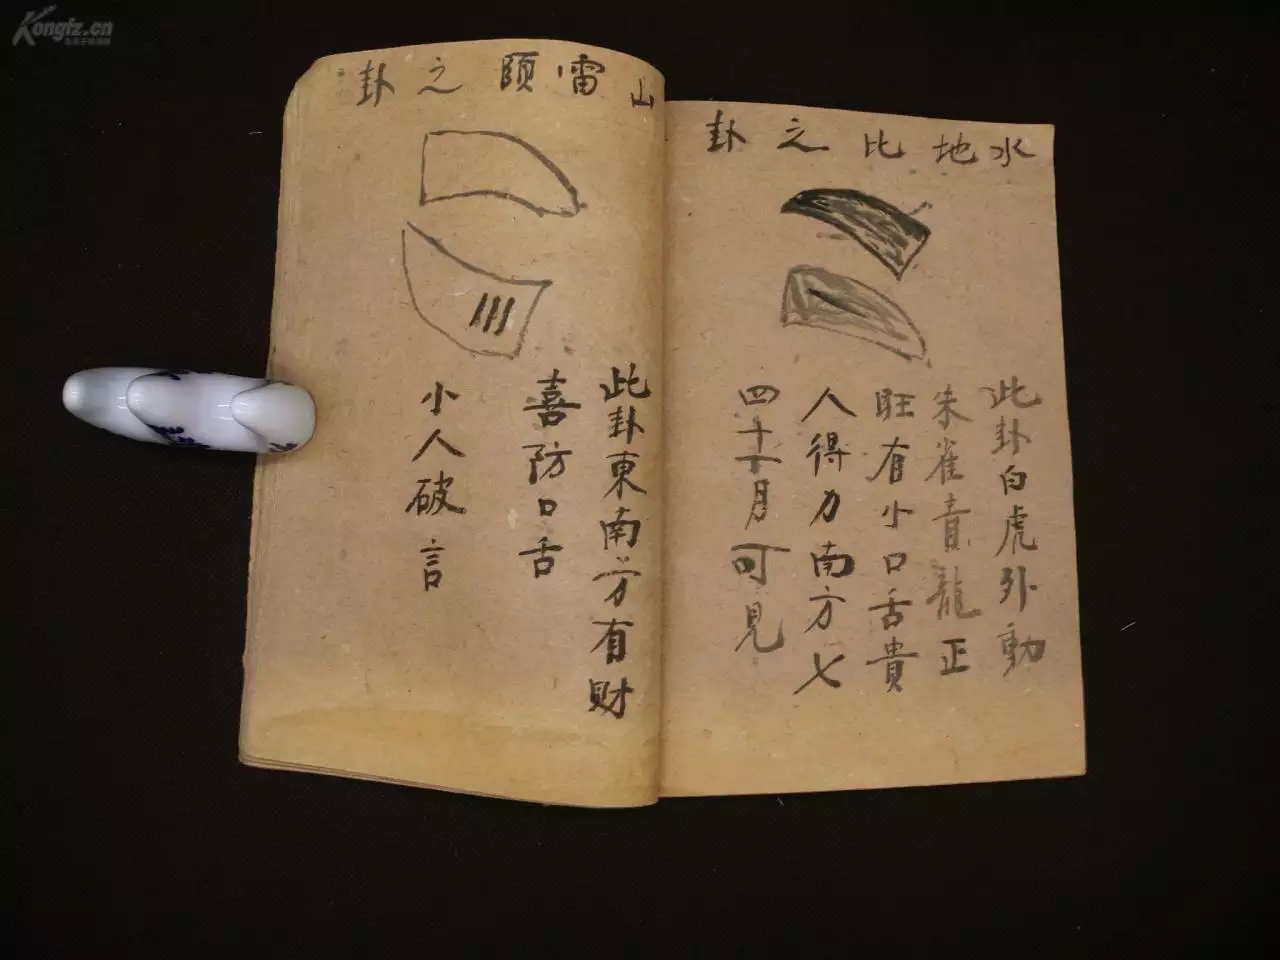 Kongfz.cn
水地比之卦
此卦白虎外動
朱雀青龍正
旺有小口舌貴
人得力南方七
四十月可見
山雷頤之卦
此卦東南方有財
喜防口舌
小人破言